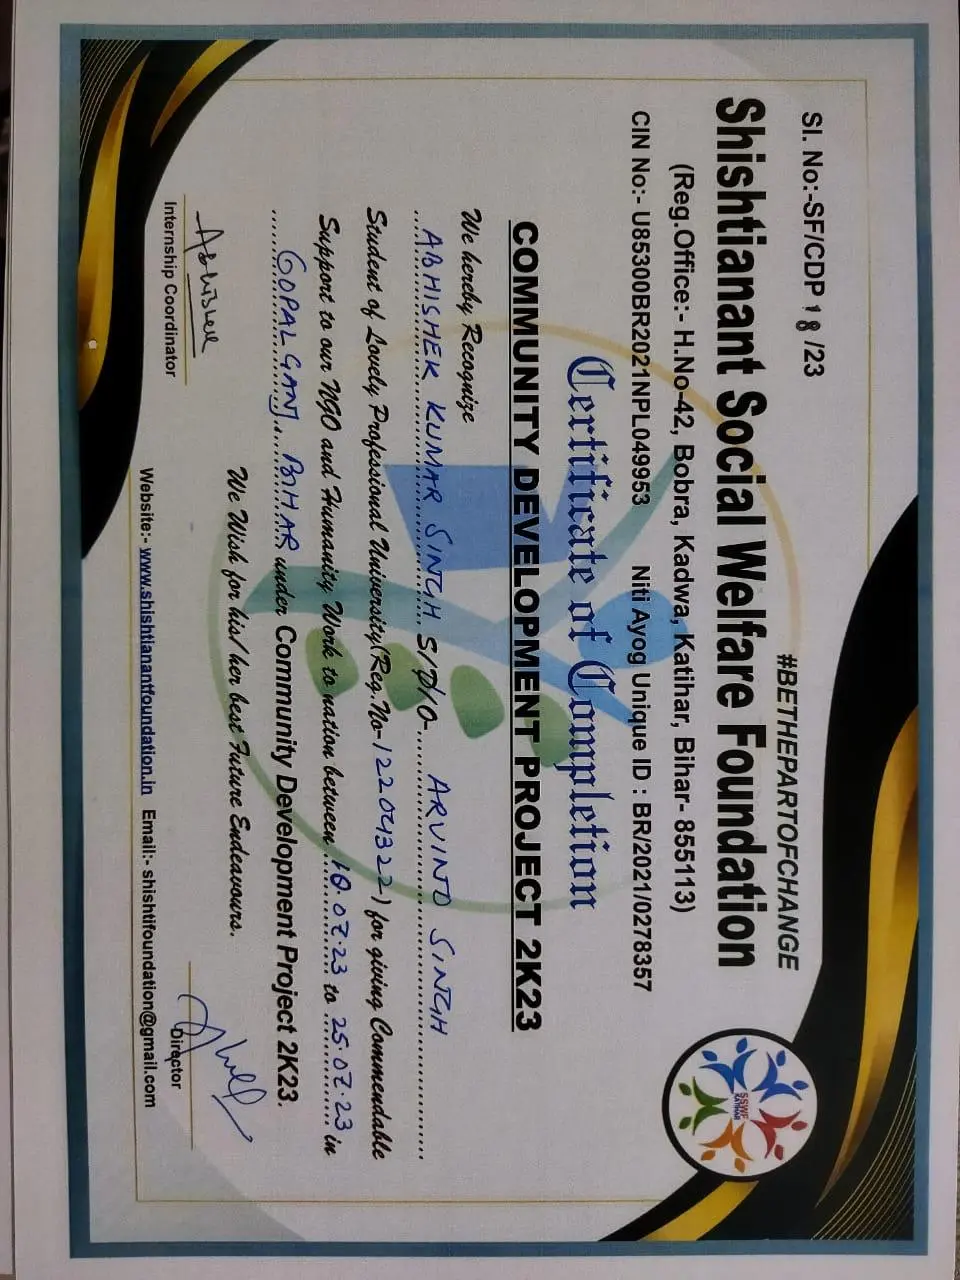 Sl. No:-SF/CDP 18 /23
#BETHEPARTOFCHANGE
Shishtianant Social Welfare Foundation
(Reg.Office:- H.No-42, Bobra, Kadwa, Katihar, Bihar- 855113)
CIN No:- U85300BR2021NPL049953 Niti Ayog Unique ID : BR/2021/0278357
SSWF
KATIHAR
Certificate of Completion
COMMUNITY DEVELOPMENT PROJECT 2K23
We hereby Recognize
ABHISHEK KUMAR SINGH S/D/O- ARVIND SINGH
Student of Lovely Professional University(Reg.No-12204322) for giving Commendable
Support to our NGO and Humanity Work to nation between 10.07.23 to 25.07.23 in
GOPALGANJ, BIHAR under Community Development Project 2K23.
We Wish for his/her best Future Endeavours.
Abhishek
Internship Coordinator
Director
Website:- www.shishtianantfoundation.in Email:- shishtifoundation@gmail.com